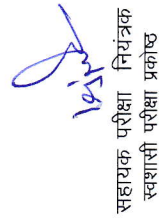 सहायक परीक्षा नियंत्रक
स्वशासी परीक्षा प्रकोष्ठ